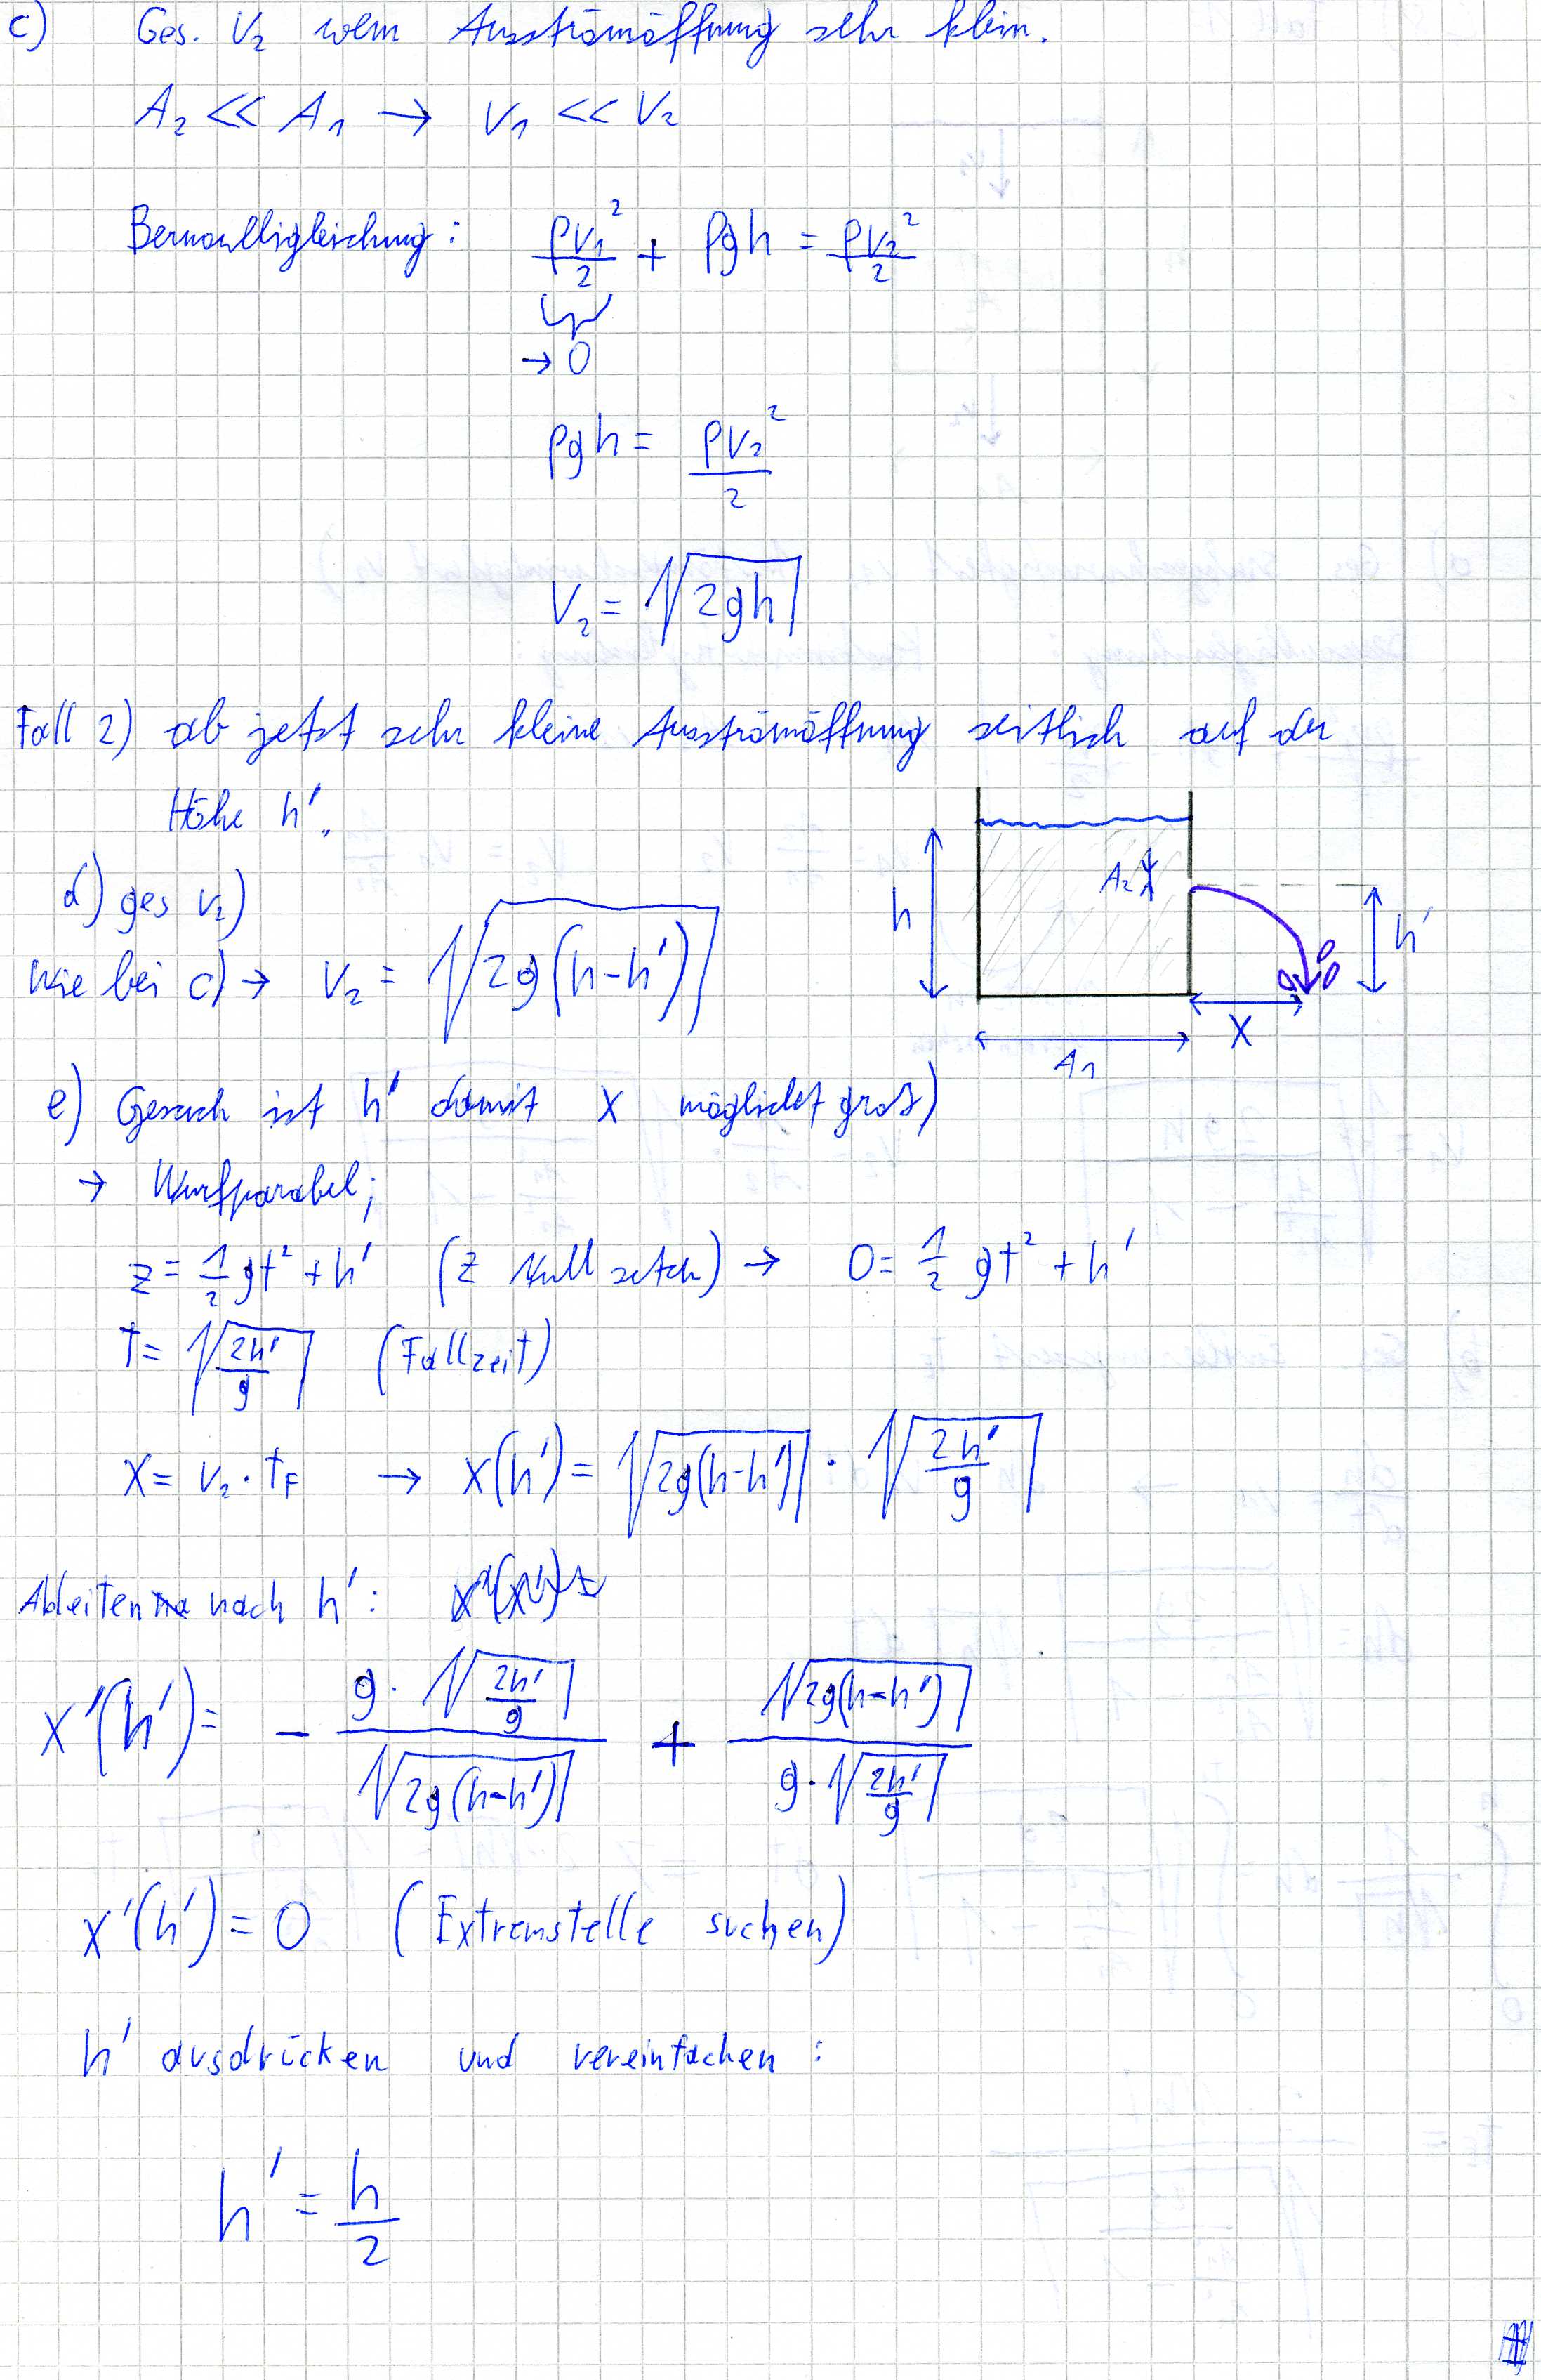 c) Ges. V₂ wenn Ausströmöffnung sehr klein.
A₂ << A₁ → V₁ << V₂
Bernoulligleichung: ρv₁²/2 + ρgh = ρv₂²/2
→ 0
ρgh = ρv₂²/2
V₂ = √(2gh)
Fall 2) ab jetzt sehr kleine Ausströmöffnung seitlich auf der
Höhe h'.
d) ges v₂)
wie bei c) → V₂ = √(2g(h-h'))
h
A₂
h'
X
A₁
e) Gesuch ist h' damit X möglichst groß)
→ Wurfparabel;
z = 1/2 gt² + h' (z Null setzen) → 0 = 1/2 gt² + h'
t = √(2h'/g) (Fallzeit)
X = V₂ · t_F → X(h') = √(2g(h-h')) · √(2h'/g)
Ableiten nach h':
X'(h') = - (g · √(2h'/g)) / √(2g(h-h')) + √(2g(h-h')) / (g · √(2h'/g))
X'(h') = 0 (Extremstelle suchen)
h' ausdrücken und vereinfachen:
h' = h/2